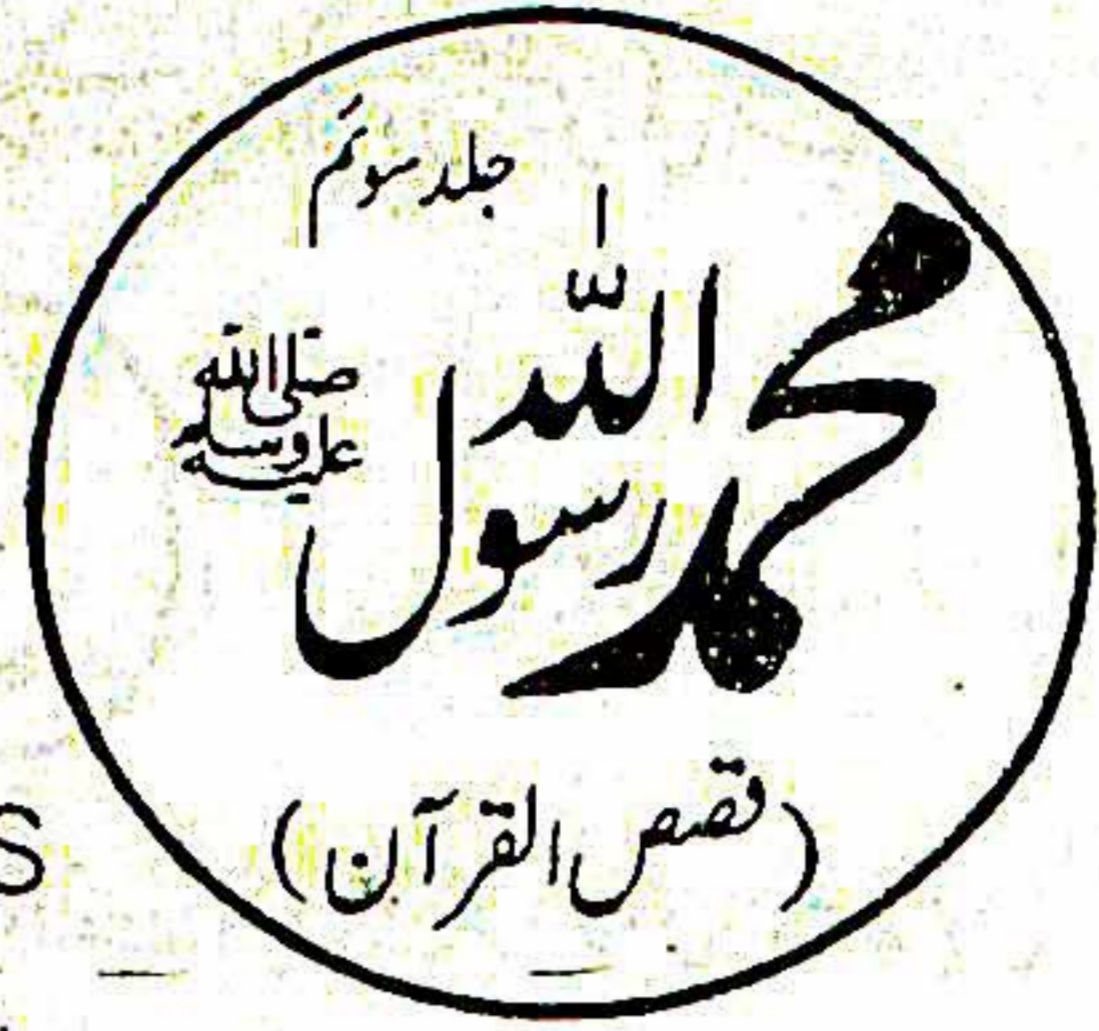 جلد سوئم
محمد رسول اللہ
صلی اللہ علیہ وسلم
(قصص القرآن)
S